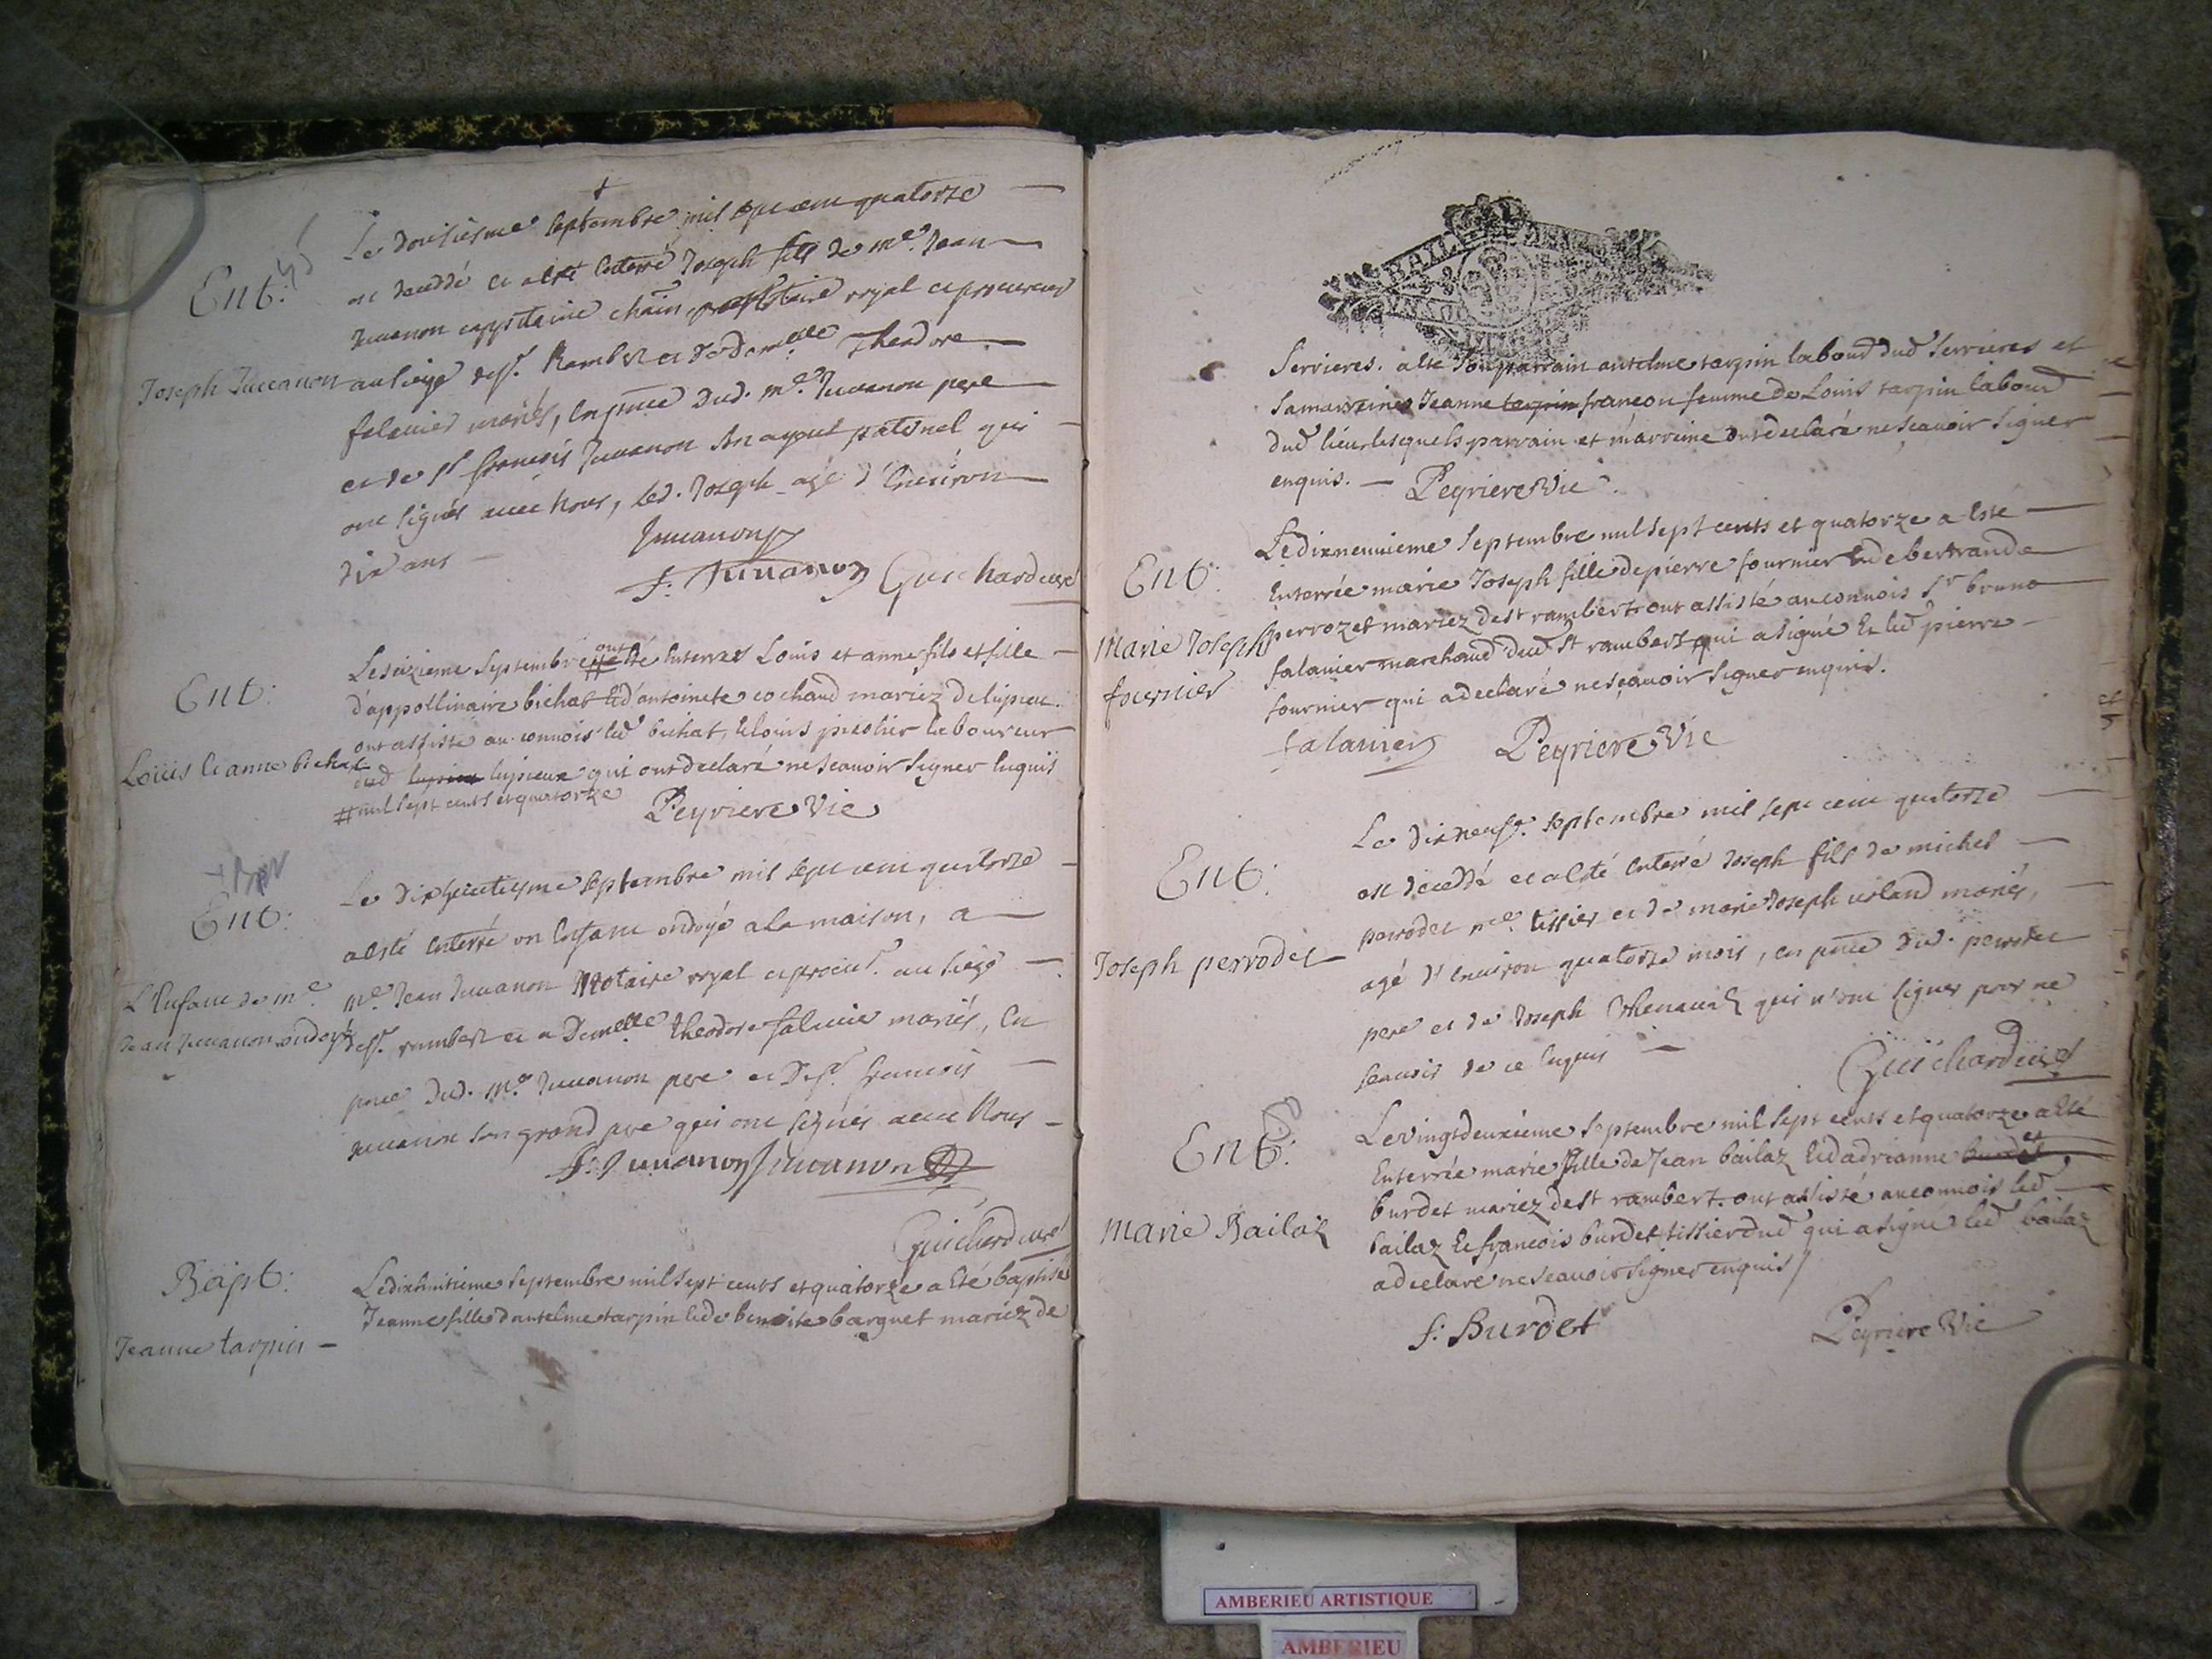 Le douziesme septembre mil sept cent quatorze
Ent:
est deceddé et a esté enterré Joseph fils de me. Jean
Juvanon cappitaine chain notaire royal et procureur
Joseph Juvanon
au siege de st. Rambert et de demelle Theodore
falavier mariés, en pnce dud. me. Juvanon pere
et de sr françois Juvanon son ayeul paternel qui
ont signés avec nous, led. Joseph agé d'environ
dix ans
Juvanon
f: Juvanon Guichard curé
Ent:
Le sizieme septembre # ont esté enterrez Louis et anne fils et fille
d'appollinaire bichat et d'antoinete cochaud mariez de lupieu
ont assisté au convois led bichat, et louis picolier laboureur
Loüis et anne bichat
dud lupieu qui ont declaré ne scavoir signer enquis
# mil sept cents et quatorze
Peyriere Vic
Ent:
Le dixhuictiesme septembre mil sept cent quatorze
a esté enterré un enfant ondoyé a la maison, a
L'Enfant de me.
Jean Juvanon ondoyé
me. Jean Juvanon Notaire royal et procur. au siege
de st. rambert et a Demelle theodore falavier mariés, en
pnce dud. me. Juvanon pere et de sr. francois
Juvanon son grand pere qui ont signés avec nous
f: Juvanon Juvanon
Guichard curé
Bapt:
Le dixhuitieme septembre mil sept cents et quatorze a esté baptisée
Jeanne fille d'antelme tarpin et de benoite barquet mariez de
Jeanne tarpin
Serrieres. a esté son parrain antelme tarpin labour dud Serrieres et
sa marreine Jeanne tarpin françon femme de Louis tarpin labour
dud lieu lesquels parrain et marreine ont declaré ne scavoir signer
enquis. Peyriere Vic
Ent:
Le dixneuvieme septembre mil sept cents et quatorze a esté
Enterrée marie Joseph fille de pierre fournier et de bertrande
Marie Joseph
fournier
perrozet mariez de st rambert ont assisté au convois sr bruno
falavier marchand dud st rambert qui a signé et led pierre
fournier qui a declaré ne sçavoir signer enquis.
falavier Peyriere Vic
Ent:
Le dixneuf. septembre mil sept cent quatorze
est deceddé et a esté enterré Joseph fils de michel
Joseph perrodet
perrodet me. tissier et de marie Joseph mariés,
agé d'environ quatorze mois, en pnce dud. perrodet
pere et de Joseph qui n'ont signer pour ne
scavoir de ce enquis
Guichard curé
Ent:
Le vingtdeuxieme septembre mil sept cents et quatorze a esté
Enterrée marie fille de Jean bailaz et d'adrianne burdet
Marie Bailaz
burdet mariez de st rambert. ont assisté au convois led
bailaz et françois burdet tissier dud qui a signé led bailaz
a declaré ne scavoir signer enquis
f: Burdet
Peyriere Vic
AMBERIEU ARTISTIQUE
AMBERIEU